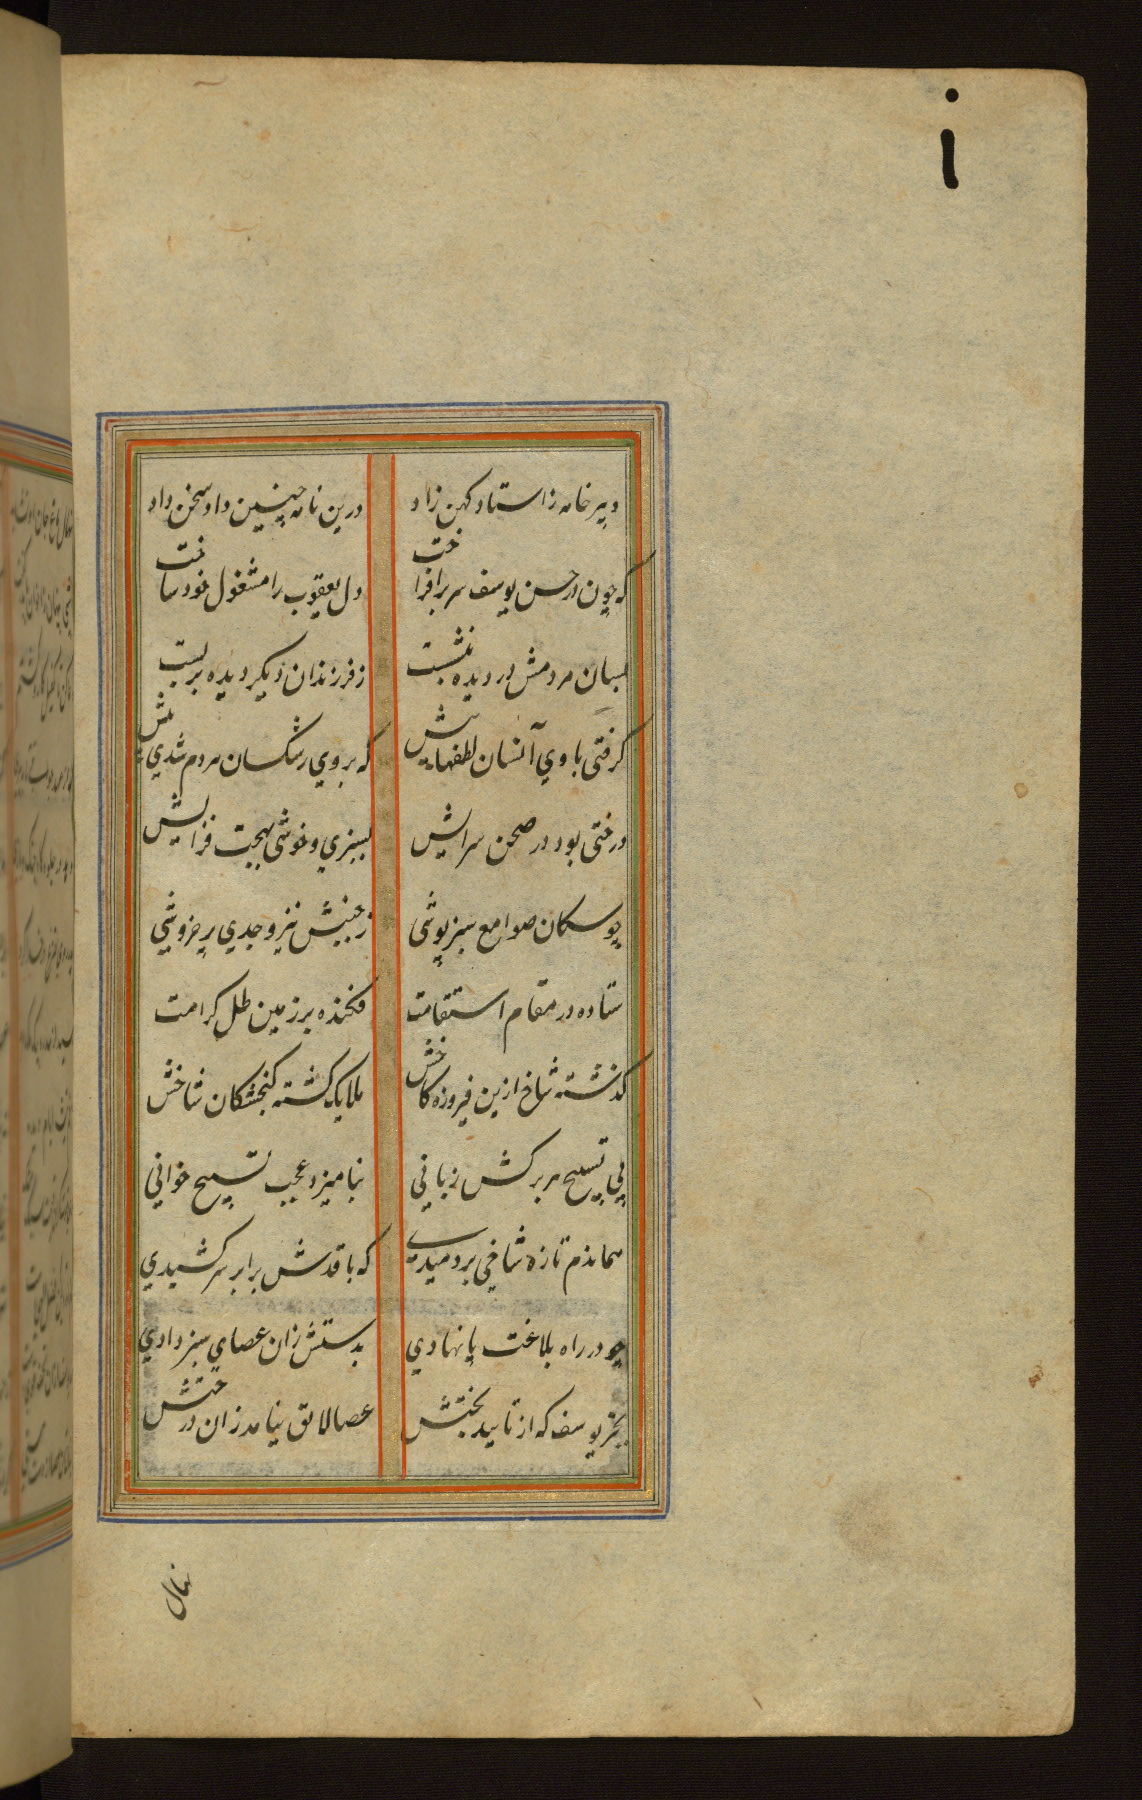 دبیر خامه ز استاد کهن زاد درین نامه چنین داد سخن داد
که چون در حسن یوسف سر برافراخت دل یعقوب را مشغول خود ساخت
بسان مردمش در دیده بنشست ز فرزندان دیکر دیده بر بست
کرفتی با وی آنسان لطفهاییش که بر وی رشکسان مردم شدی بیش
درختی بود در صحن سرایش بسبزی و خوشی بهجت فزایش
چو سکان صوامع سبز پوشی ز جنبش نیز وجدی پر خروشی
ستاده در مقام استقامت فکنده بر زمین ظل کرامت
کذشته شاخ ازین فیروزه کاخش ملایک کشته کنجشکان شاخش
پی تسبیح هر برکش زبانی بنامیزد عجب تسبیح خوانی
هماندم تازه شاخی بردمیدی که با قدش برابر سر کشیدی
چو در راه بلاغت پا نهادی بدستش زان عصای سبز دادی
بجز یوسف که از تایید بختش عصا لایق نیامد زان درختش
نهال